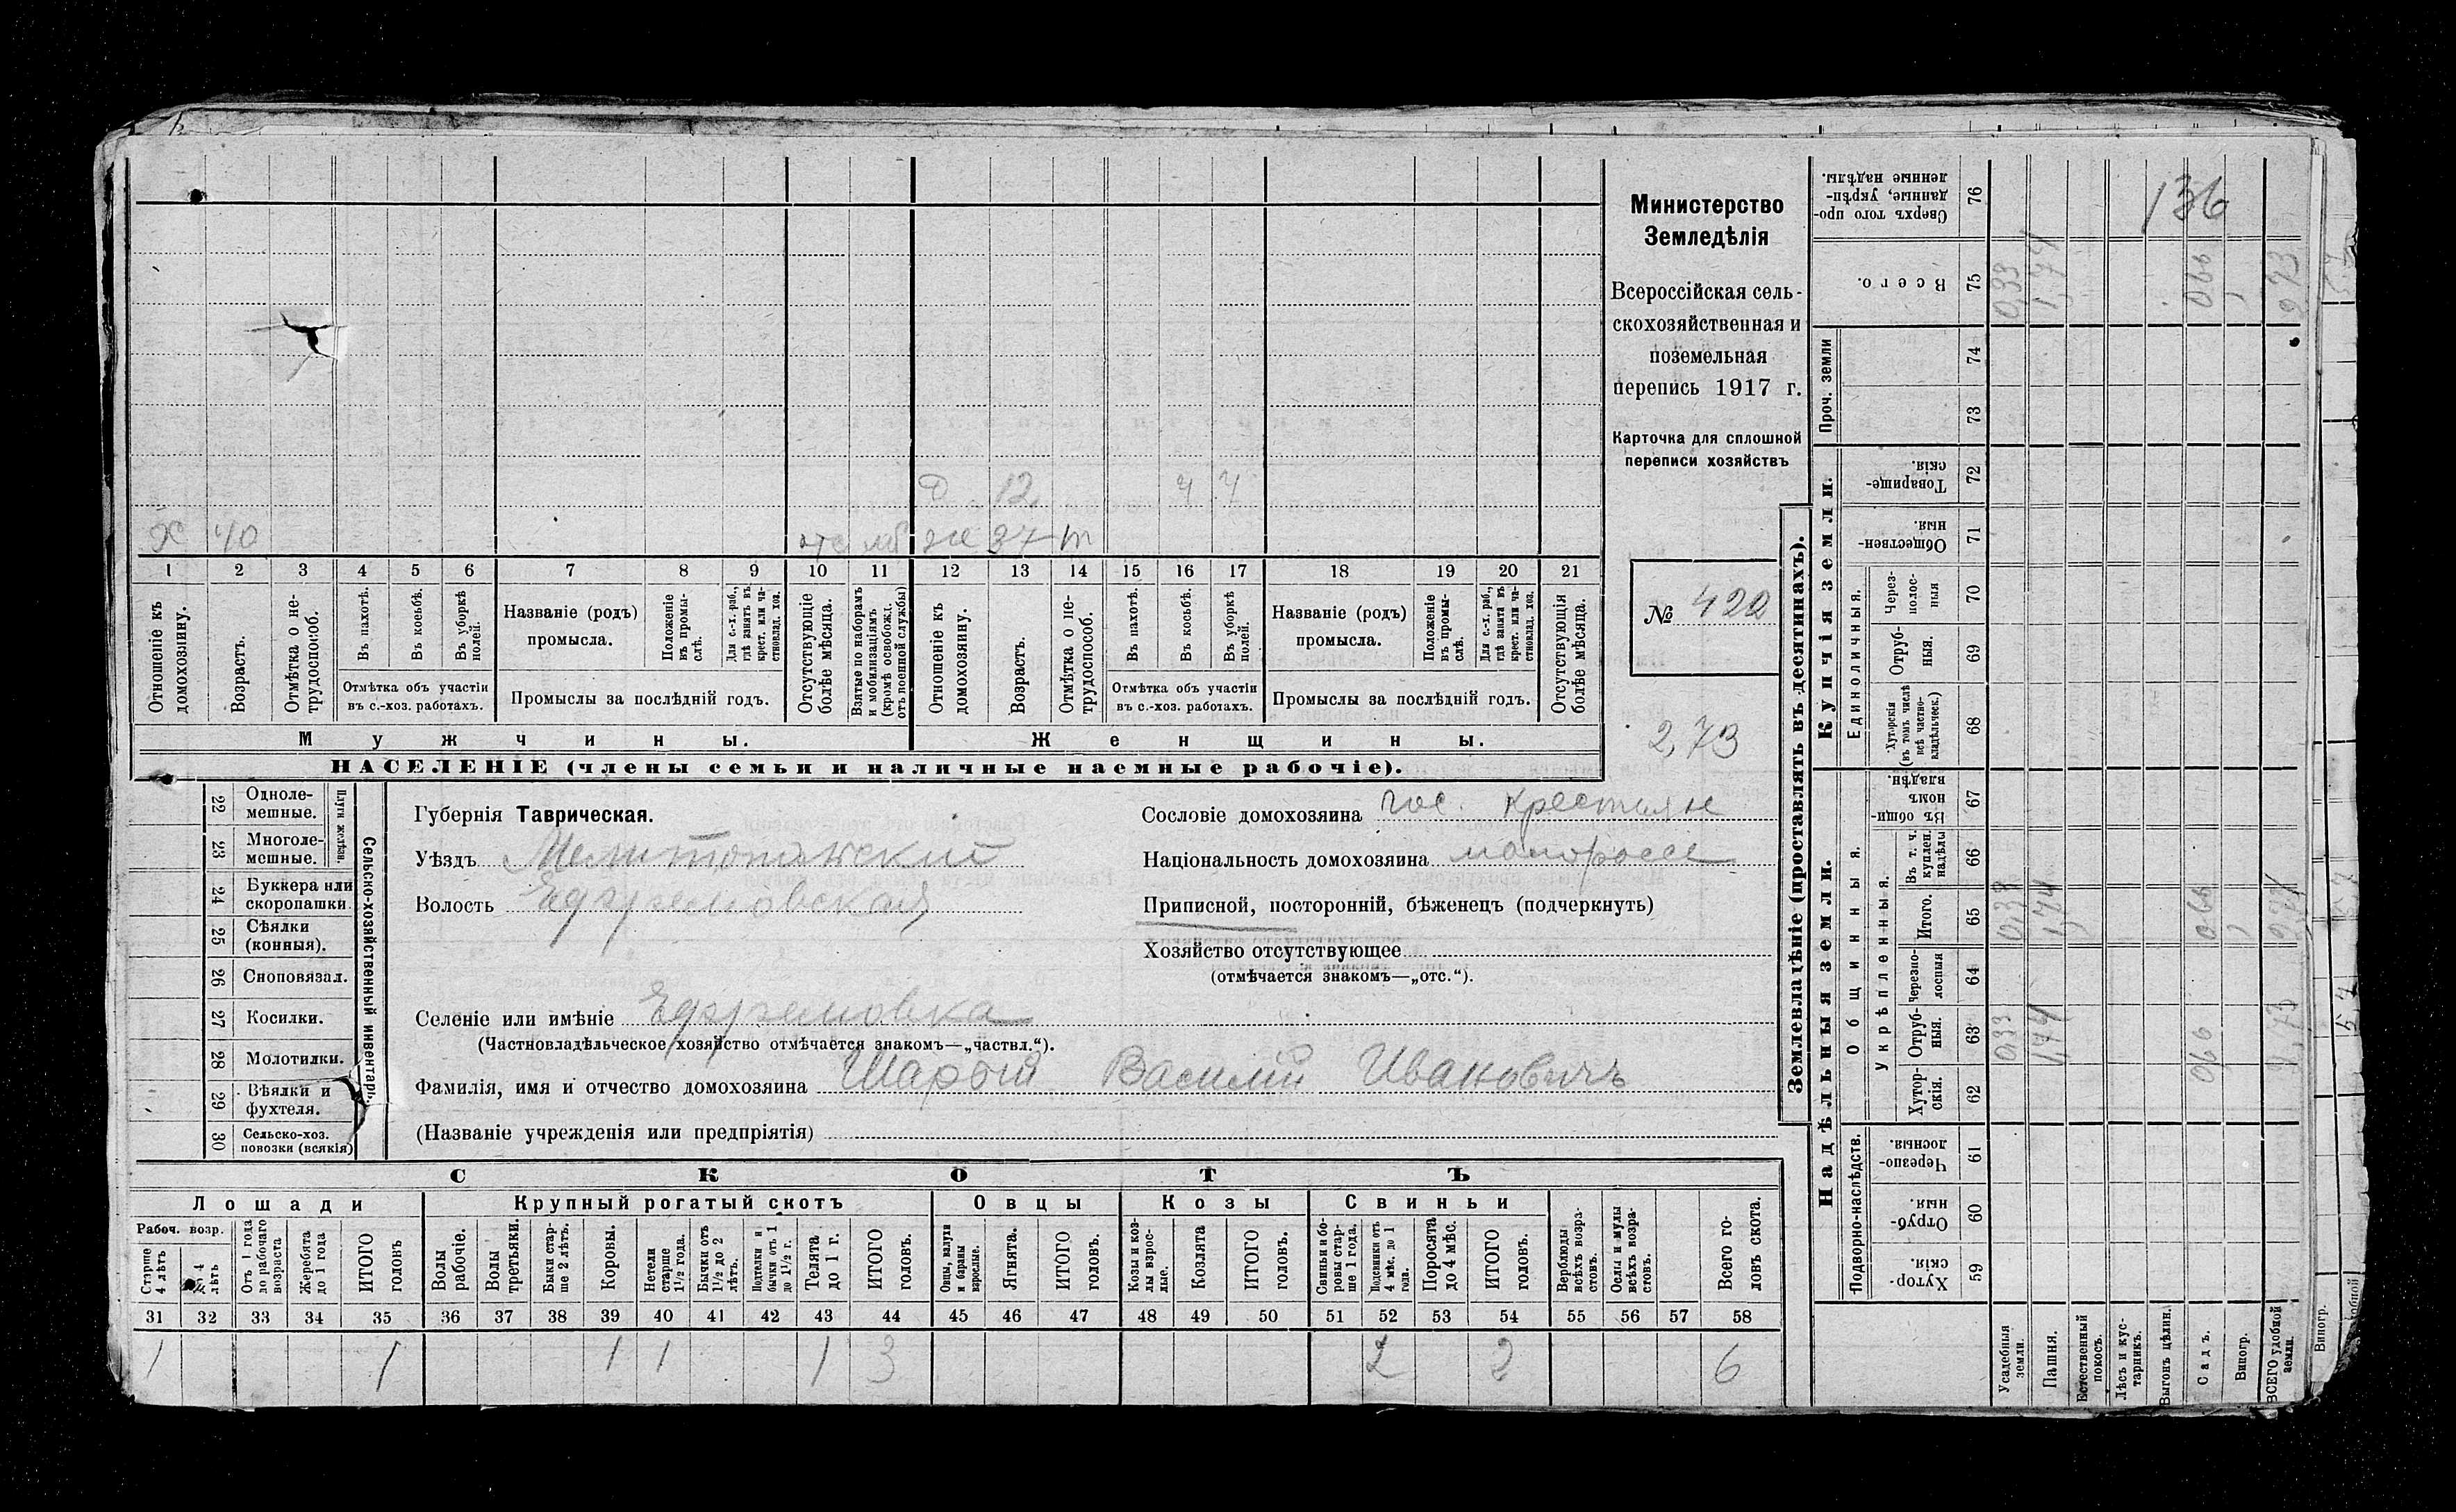 Д 12 ч ч
Х 40 отс мб же 37 т
1 2 3 4 5 6 7 8 9 10 11 12 13 14 15 16 17 18 19 20 21
Отношеніе къ домохозяину.
Возрастъ.
Отмѣтка о не-трудоспособ.
Въ пахотѣ.
Въ косьбѣ.
Въ уборкѣ полей.
Отмѣтка объ участіи
въ с.-хоз. работахъ.
Названіе (родъ)
промысла.
Положеніе въ промы-слѣ.
Для с.-х. раб., гдѣ занятъ въ крест. или ча-стновлад. хоз.
Промыслы за послѣдній годъ.
Отсутствующіе болѣе мѣсяца.
Взятые по наборамъ и мобилизаціямъ (кромѣ освобожд. отъ военной службы)
Отношеніе къ домохозяину.
Возрастъ.
Отмѣтка о не-трудоспособ.
Въ пахотѣ.
Въ косьбѣ.
Въ уборкѣ полей.
Отмѣтка объ участіи
въ с.-хоз. работахъ.
Названіе (родъ)
промысла.
Положеніе въ промы-слѣ.
Для с.-х. раб., гдѣ занятъ въ крест. или ча-стновлад. хоз.
Промыслы за послѣдній годъ.
Отсутствующія болѣе мѣсяца.
Мужчины. Женщины.
НАСЕЛЕНІЕ (члены семьи и наличные наемные рабочіе).
Министерство
Земледѣлія
Всероссійская сель-
скохозяйственная и
поземельная
перепись 1917 г.
Карточка для сплошной
переписи хозяйствъ
№ 420
2,73
22 Одноле-мешные.
23 Многоле-мешные.
Плуги желѣзн.
24 Буккера или скоропашки
25 Сѣялки (конныя).
26 Сноповязал.
27 Косилки.
28 Молотилки.
29 Вѣялки и фухтеля.
30 Сельско-хоз. повозки (всякія)
Сельско-хозяйственный инвентарь.
Губернія Таврическая.
Уѣздъ Мелитопольскій
Волость Ефремовская
Селеніе или имѣніе Ефремовка
(Частновладѣльческое хозяйство отмѣчается знакомъ—„частвл.“).
Фамилія, имя и отчество домохозяина Шарой Василій Ивановичъ
(Названіе учрежденія или предпріятія)
Сословіе домохозяина гос. крестьян
Національность домохозяина малоросс
Приписной, посторонній, бѣженецъ (подчеркнуть)
Хозяйство отсутствующее
(отмѣчается знакомъ—„отс.“).
СКОТЪ
Лошади Крупный рогатый скотъ Овцы Козы Свиньи
Рабоч. возр.
Старше 4 лѣтъ
До 4 лѣтъ
Отъ 1 года до рабочаго возраста
Жеребята до 1 года
ИТОГО головъ
Волы рабочіе.
Волы третьяки.
Быки стар-ше 2 лѣтъ.
Коровы.
Нетели старше 1½ года.
Бычки отъ 1½ до 2 лѣтъ.
Подтелки и бычки отъ 1 до 1½ г.
Телята до 1 г.
ИТОГО головъ.
Овцы, валухи и бараны взрослые.
Ягнята.
ИТОГО головъ.
Козы и коз-лы взрос-лые.
Козлята
ИТОГО головъ.
Свиньи и бо-ровы стар-ше 1 года.
Подсвинки отъ 4 мѣс. до 1 года.
Поросята до 4 мѣс.
ИТОГО головъ.
Верблюды всѣхъ возра-стовъ.
Ослы и мулы всѣхъ возра-стовъ.
Всего го-ловъ скота.
31 32 33 34 35 36 37 38 39 40 41 42 43 44 45 46 47 48 49 50 51 52 53 54 55 56 57 58
1 1 1 1 1 3 2 2 6
Землевладѣніе (проставлять въ десятинахъ).
Надѣльныя земли. Купчія земли. Проч. земли
Подворно-наслѣдств.
Общинныя.
Укрѣпленныя.
Единоличныя.
Хутор-скія. 59
Отруб-ныя. 60
Черезпо-лосныя. 61
Хутор-скія. 62
Отруб-ныя. 63 0,33 1,74 0,66 2,73
Черезпо-лосныя 64
Итого. 65 0,33 1,74 0,66 2,73
Въ т. ч. куплен. надѣлы 66
Въ общи-номъ владѣн. 67
Хуторскія (въ томъ числѣ всѣ частно-владѣльческ.) 68
Отруб-ныя. 69
Через-полос-ныя 70
Обществен-ныя. 71
Товарище-скія. 72
73
74
Всего. 75 0,33 1,74 0,66 2,73
Сверхъ того про-данные, укрѣп-ленные надѣлы. 76
136
Усадебныя земли.
Пашня.
Естественный покосъ.
Лѣсъ и кус-тарникъ.
Выгонъ цѣлин.
Садъ.
Виногр.
ВСЕГО удобной земли.
Виногр.